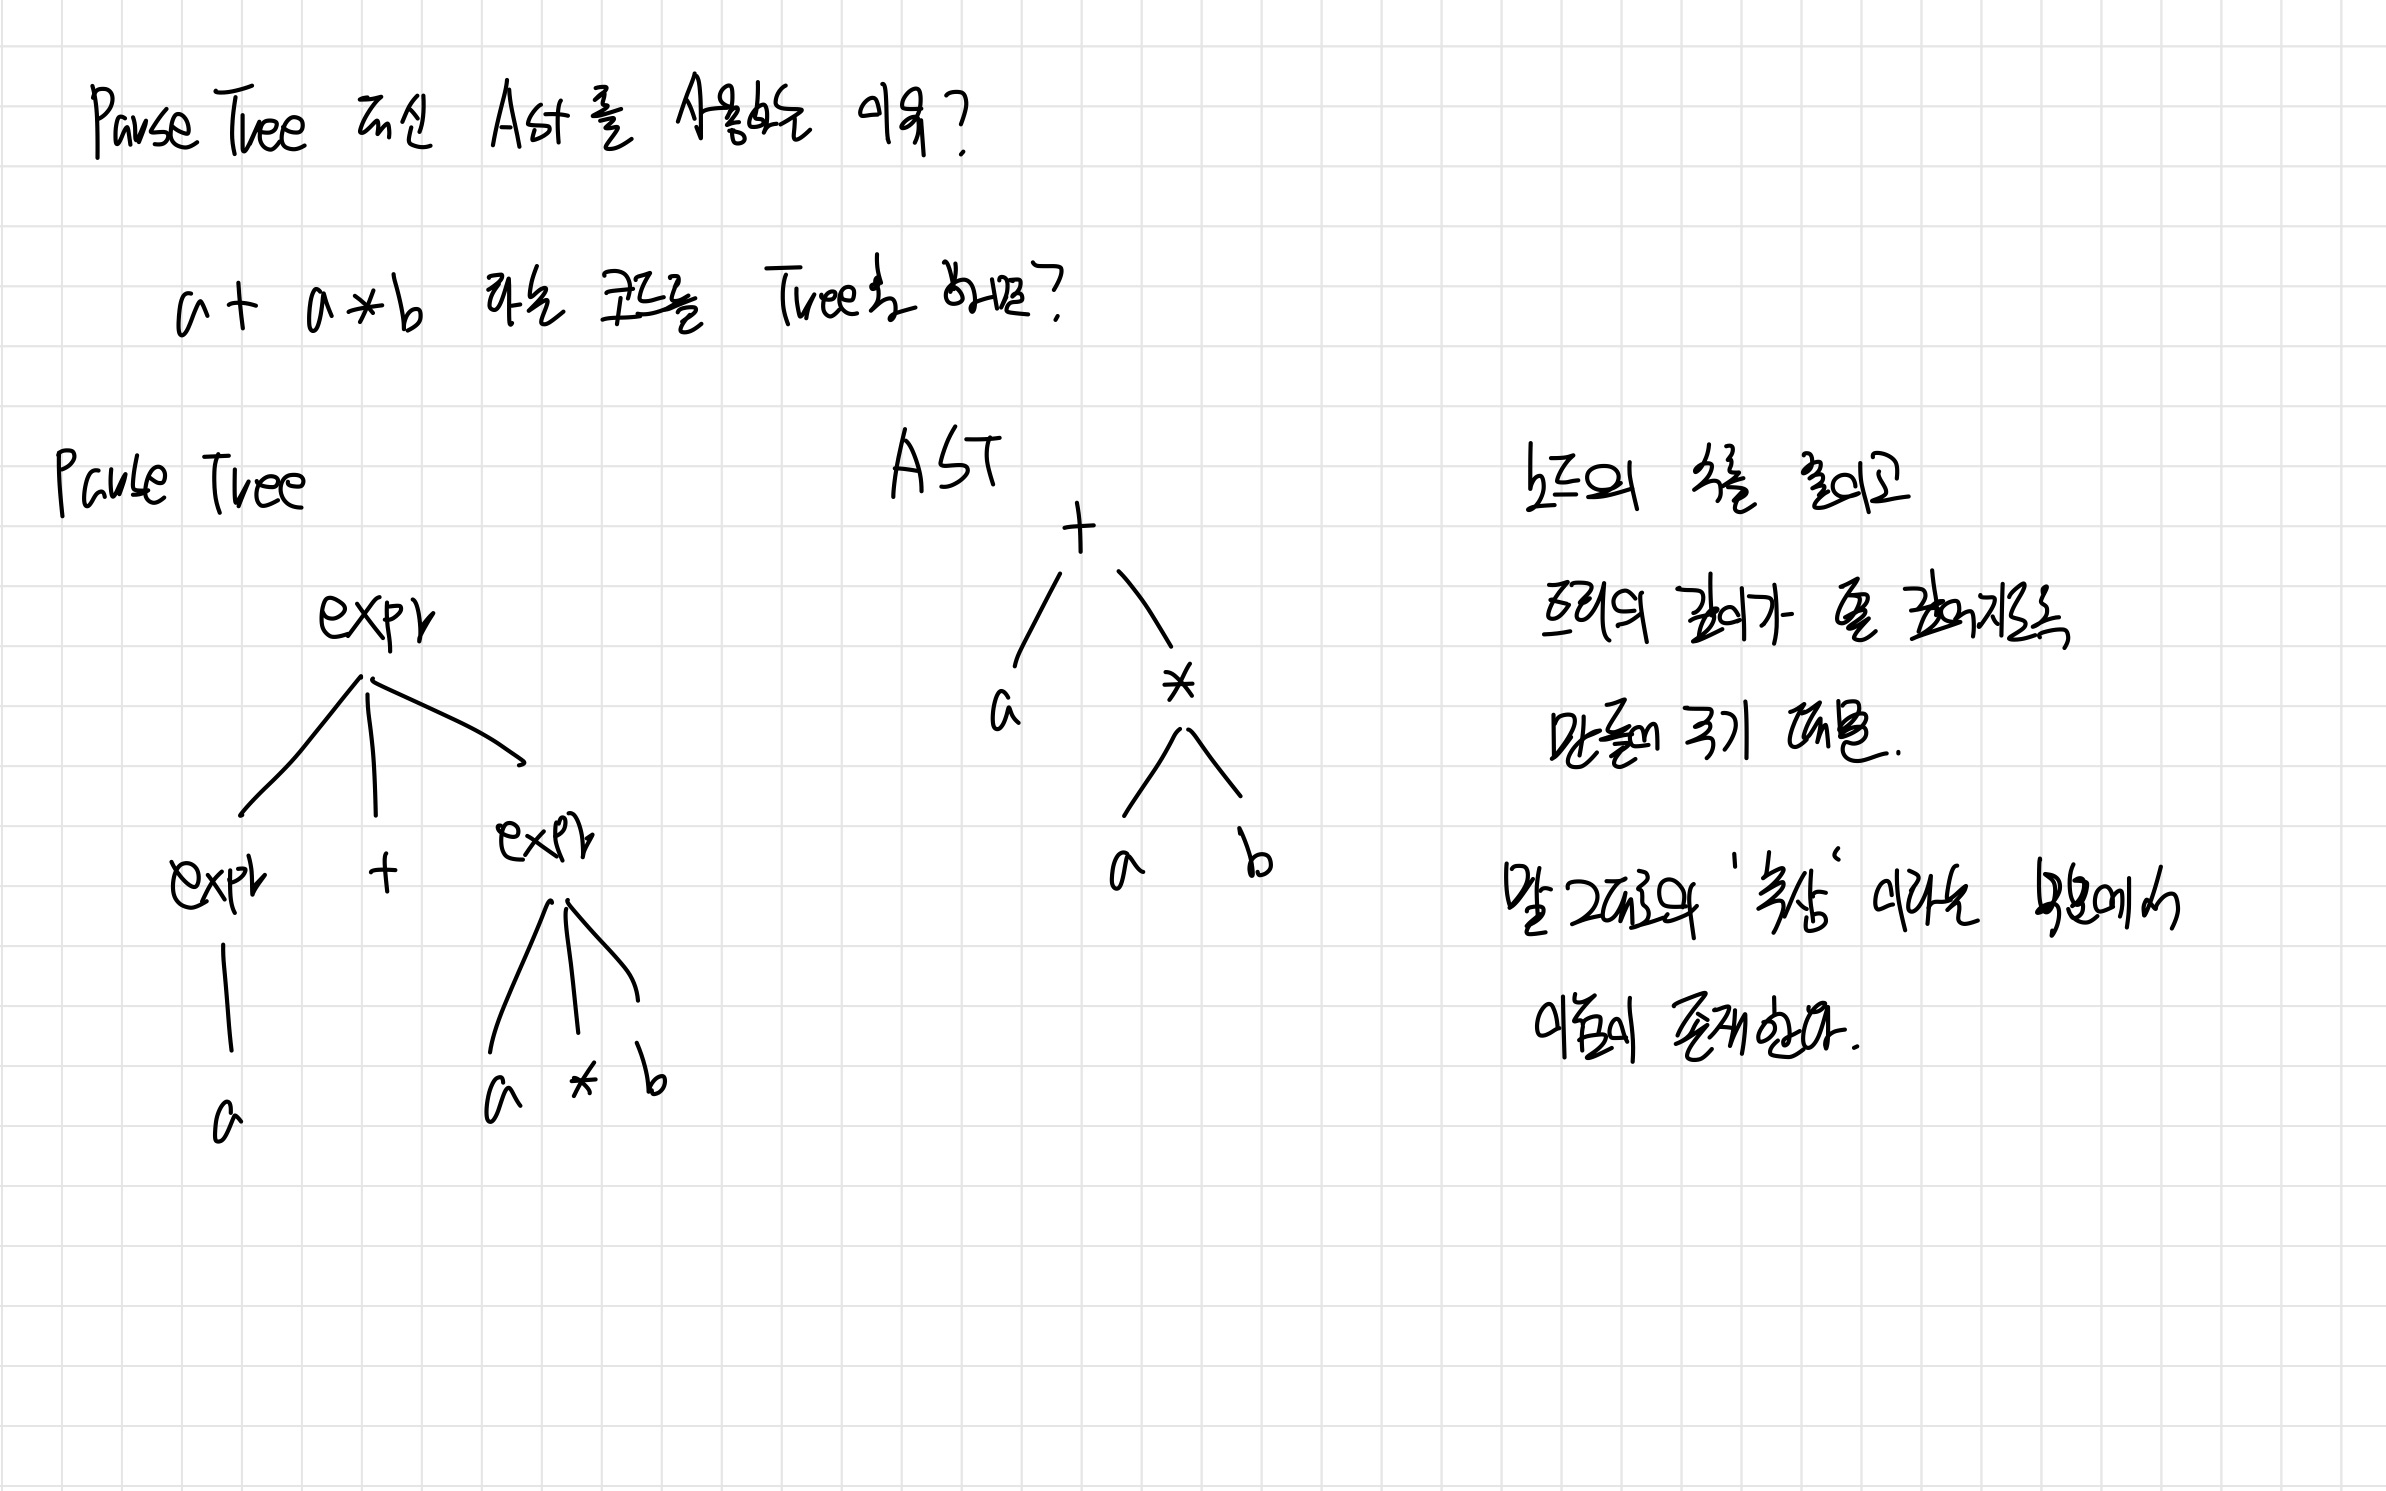 Parse Tree 대신 Ast를 사용하는 이유?
a + a * b 라는 코드를 Tree로 하면?
Parse Tree
expr
expr + expr
a a * b
AST
+
a *
a b
노드의 수를 줄이고
트리의 높이가 를
만들어 주기 때문.
불필요한 '축상' 이라는 에서
이름이 존재한다.